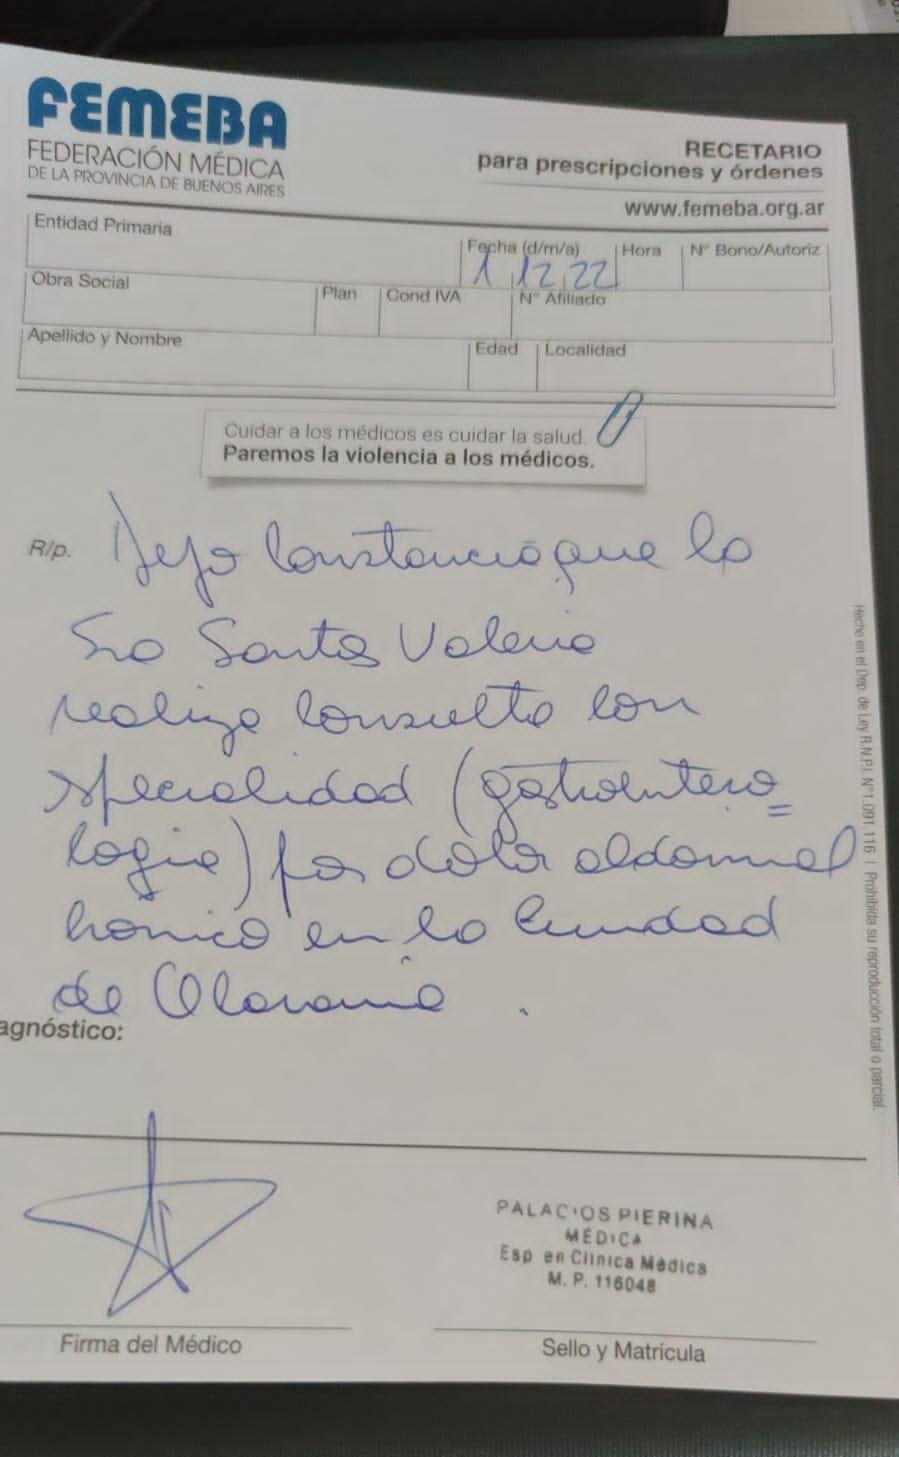 FEMEBA
FEDERACIÓN MÉDICA
DE LA PROVINCIA DE BUENOS AIRES
RECETARIO
para prescripciones y órdenes
www.femeba.org.ar
Entidad Primaria
Fecha (d/m/a) Hora N° Bono/Autoriz
1 12 22
Obra Social Plan Cond IVA N° Afiliado
Apellido y Nombre Edad Localidad
Cuidar a los médicos es cuidar la salud.
Paremos la violencia a los médicos.
R/p. Dejo constancia que la
Sra Santos Valeria
realizo consulta con
especialidad (gastroentero=
logia) por dolor abdominal
cronico en la ciudad
de Olavarria.
agnóstico:
Firma del Médico
PALACIOS PIERINA
MÉDICA
Esp en Clínica Médica
M. P. 116048
Sello y Matrícula
Hecho en el Dep. de Ley R.N.P.I. N° 1.091.116 | Prohibida su reproducción total o parcial.